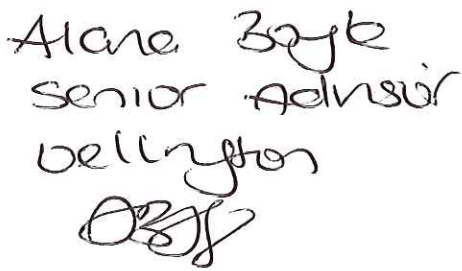 Alana Boyle
Senior Advisor
Wellington